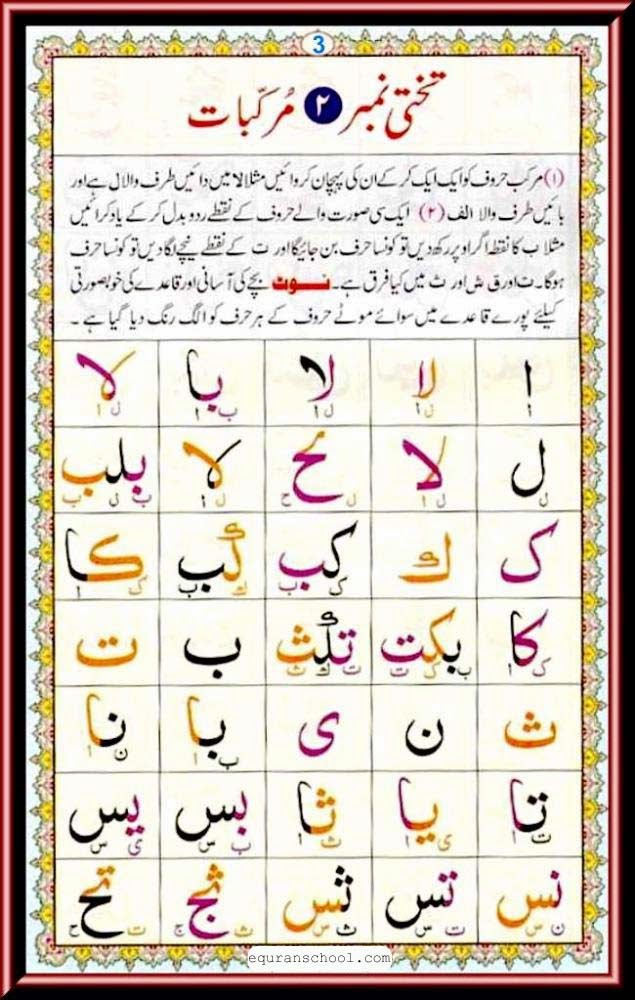 3
تختی نمبر ۲ مُرکّبات
(۱) مرکب حروف کو ایک ایک کر کے ان کی پہچان کروائیں مثلا لا میں دائیں طرف والا ل ہے اور
بائیں طرف والا الف (۲) ایک سی صورت والے حروف کے نقطے ردوبدل کر کے یاد کرائیں
مثلا ب کا نقطہ اگر اوپر رکھ دیں تو کونسا حرف بن جائیگا اور ت کے نقطے نیچے لگا دیں تو کونسا حرف
ہوگا۔ ت اور ق ش اور ث میں کیا فرق ہے۔ نوٹ بچے کی آسانی اور قاعدے کی خوبصورتی
کیلئے پورے قاعدے میں سوائے موٹے حروف کے ہر حرف کو الگ رنگ دیا گیا ہے۔
ا لا لا با لا
ل ا ل ا ب ا ل ا
ل لا لح لا بلب
ل ل ا ل ح ل ا ب ل ب
ک ك کب كب کا
ک ب ك ب ک ا
کا بکت تكث ب ت
ک ا ب ک ت ت ك ث
ث ن ی با نا
ب ا ن ا
تا یا ثا بس یس
ت ا ی ا ث ا ب س ی س
نس تس ثس ثج تح
ن س ت س ث س ث ج ت ح
equranschool.com